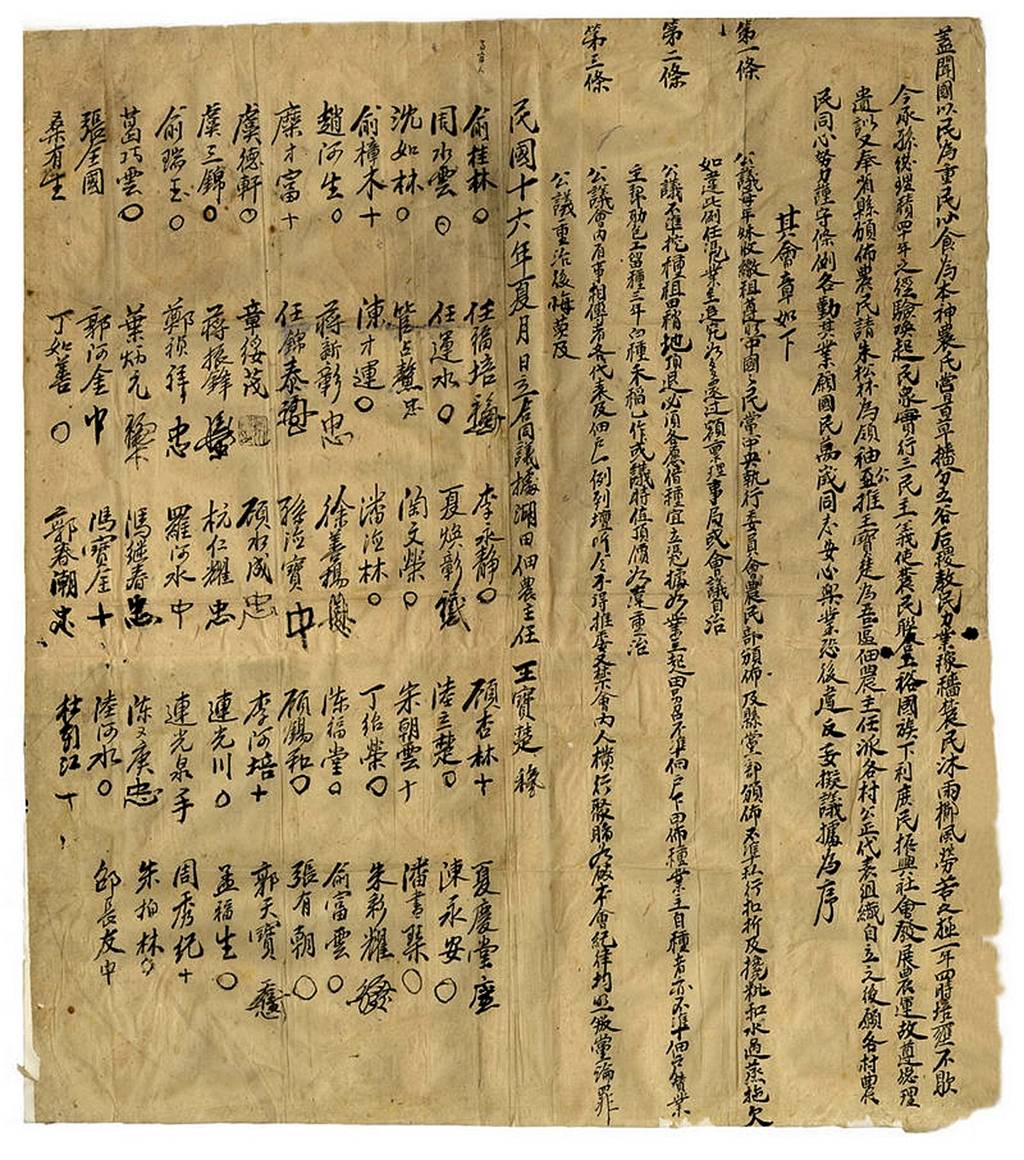 蓋聞國以民為重民以食為本神農氏嘗百草播分五谷后稷教民力業稼穡農民沐雨櫛風勞苦之極一年四時培壅不歇
今承孫總理積四十年之經驗喚起民眾實行三民主義使農民聯合上裕國族下利庶民振興社會發展農運故遵總理
遺訓又奉省縣頒佈農民請朱松林為領袖並公推王寶楚為吾區佃農主任派各村公正代表組織自立之後願各村農
民同心努力謹守條例各勤其業願國民萬歲同志安心樂業恐後處反妄擬議據為序
其會章如下
第一條
公議每年秋收繳租遵照中國國民黨中央執行委員會農民部頒佈及縣黨部頒佈不準私行扣折及攙粃和水過蒸拖欠
如違此例任憑業主追究如多逾過額稟理事局或會議自治
第二條
公議不準挖種租田稍地頂退必須各應借種宜立憑據如業主起田另召不準佃戶下田佈種業主自種者亦不準佃戶賃業
主即助包工留種三年向種禾稻工作或議時值頂價如違重治
第三條
公議會內有事相傳者各代表及佃戶一例到壇听令不得推委又禁會內人橫行聚賭如破本會紀律均照叛黨論罪
公議重治後悔莫及
民國十六年夏月日立合同議據湖田佃農主任 王寶楚
俞桂林 任福培 李永靜 顧杏林十 夏慶堂
周水雲 任運水 夏煥彰 陸立楚 陳永安
沈如林 管占鰲忠 陶文榮 朱朝雲十 潘書琴
俞樟木十 陳才運 潘渭林 丁紹榮 朱彩耀
趙河生 蔣新彰忠 徐善楊 陳福堂 俞富雲
糜才富十 任錦泰 孫渭寶中 顧錫和 張有朝
虞德軒 章綏茂 顧水成忠 李河培十 郭天寶
虞三錦 蔣振鋒 杭仁耀忠 連光川 孟福生
俞瑞玉 鄭禎祥忠 羅河水中 連光泉手 周秀紀十
葛巧雲 葉炳元 馮繼春忠 陳文庚忠 朱柏林
張全國 郭阿金中 馮寶全十 陸河水 邵長友中
桑有生 丁如善 郭春潮忠 杜江十